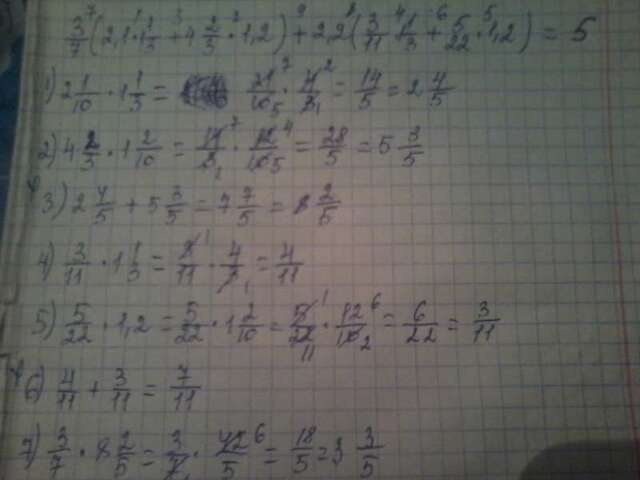 3/7 (2,1 · 1 1/3 + 4 2/3 · 1,2) + 2,2 (3/11 · 1 1/3 + 5/22 · 1,2) = 5
1) 2 1/10 · 1 1/3 = 21/10 · 4/3 = 14/5 = 2 4/5
2) 4 2/3 · 1 2/10 = 14/3 · 12/10 = 28/5 = 5 3/5
3) 2 4/5 + 5 3/5 = 7 7/5 = 8 2/5
4) 3/11 · 1 1/3 = 3/11 · 4/3 = 4/11
5) 5/22 · 1,2 = 5/22 · 1 2/10 = 5/22 · 12/10 = 6/22 = 3/11
6) 4/11 + 3/11 = 7/11
7) 3/7 · 8 2/5 = 3/7 · 42/5 = 18/5 = 3 3/5